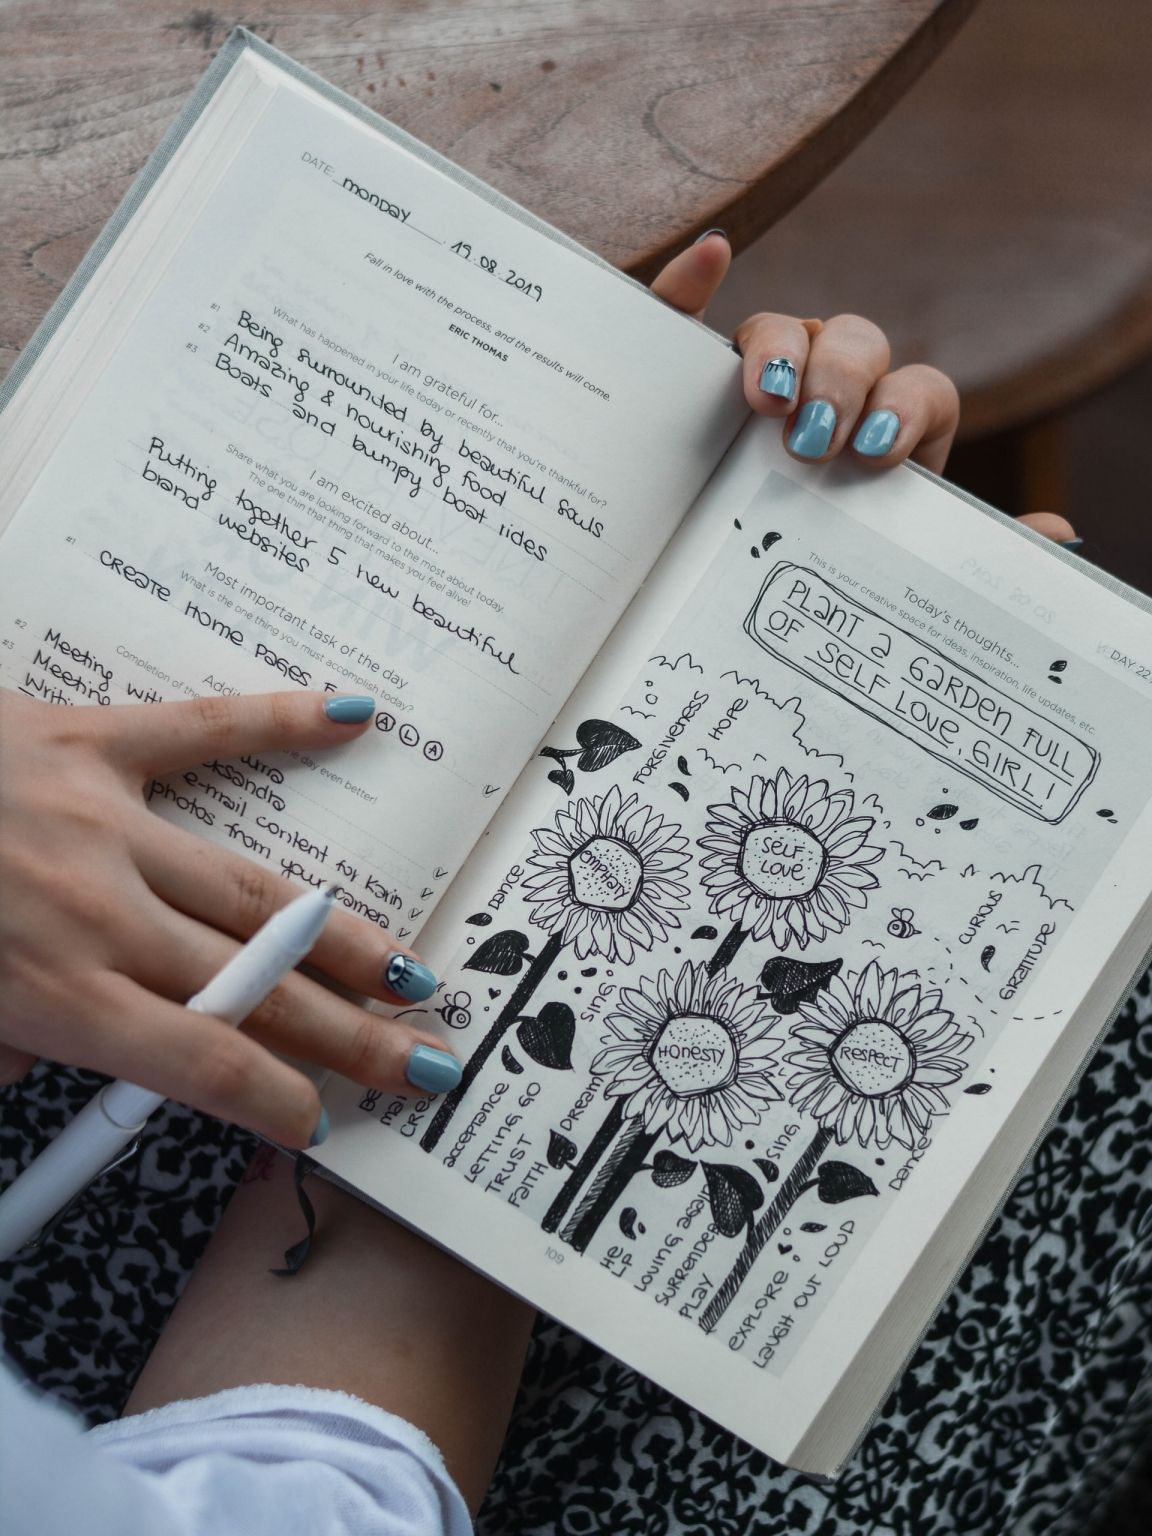 DATE: monday 19.08.2019
Fall in love with the process, and the results will come.
ERIC THOMAS
I am grateful for...
What has happened in your life today or recently that you're thankful for?
#1 Being surrounded by beautiful souls
#2 Amazing & nourishing food
#3 Boats and bumpy boat rides
I am excited about...
Share what you are looking forward to the most about today.
The one thin that thing that makes you feel alive!
Putting together 5 new beautiful
brand websites
Most important task of the day
What is the one thing you must accomplish today?
#1 CREATE HOME PAGES F
A L A
Addi
Completion of the
the day even better!
#2 Meeting with
#3 Meeting
Writi
ksandra
e-mail content for Karin
photos from your camera
DAY 22
Today's thoughts...
This is your creative space for ideas, inspiration, life updates, etc.
PLANT A GARDEN FULL
OF SELF LOVE, GIRL!
FORGIVENESS
HOPE
EMPATHY
SELF
LOVE
DANCE
CURIOUS
GRATITUDE
SING
HONESTY
RESPECT
DREAM
SING
DANCE
acceptance
LETTING GO
TRUST
FAITH
HE
LP
LOVING again
SURRENDER
PLAY
EXPLORE
LAUGH OUT LOUD
109